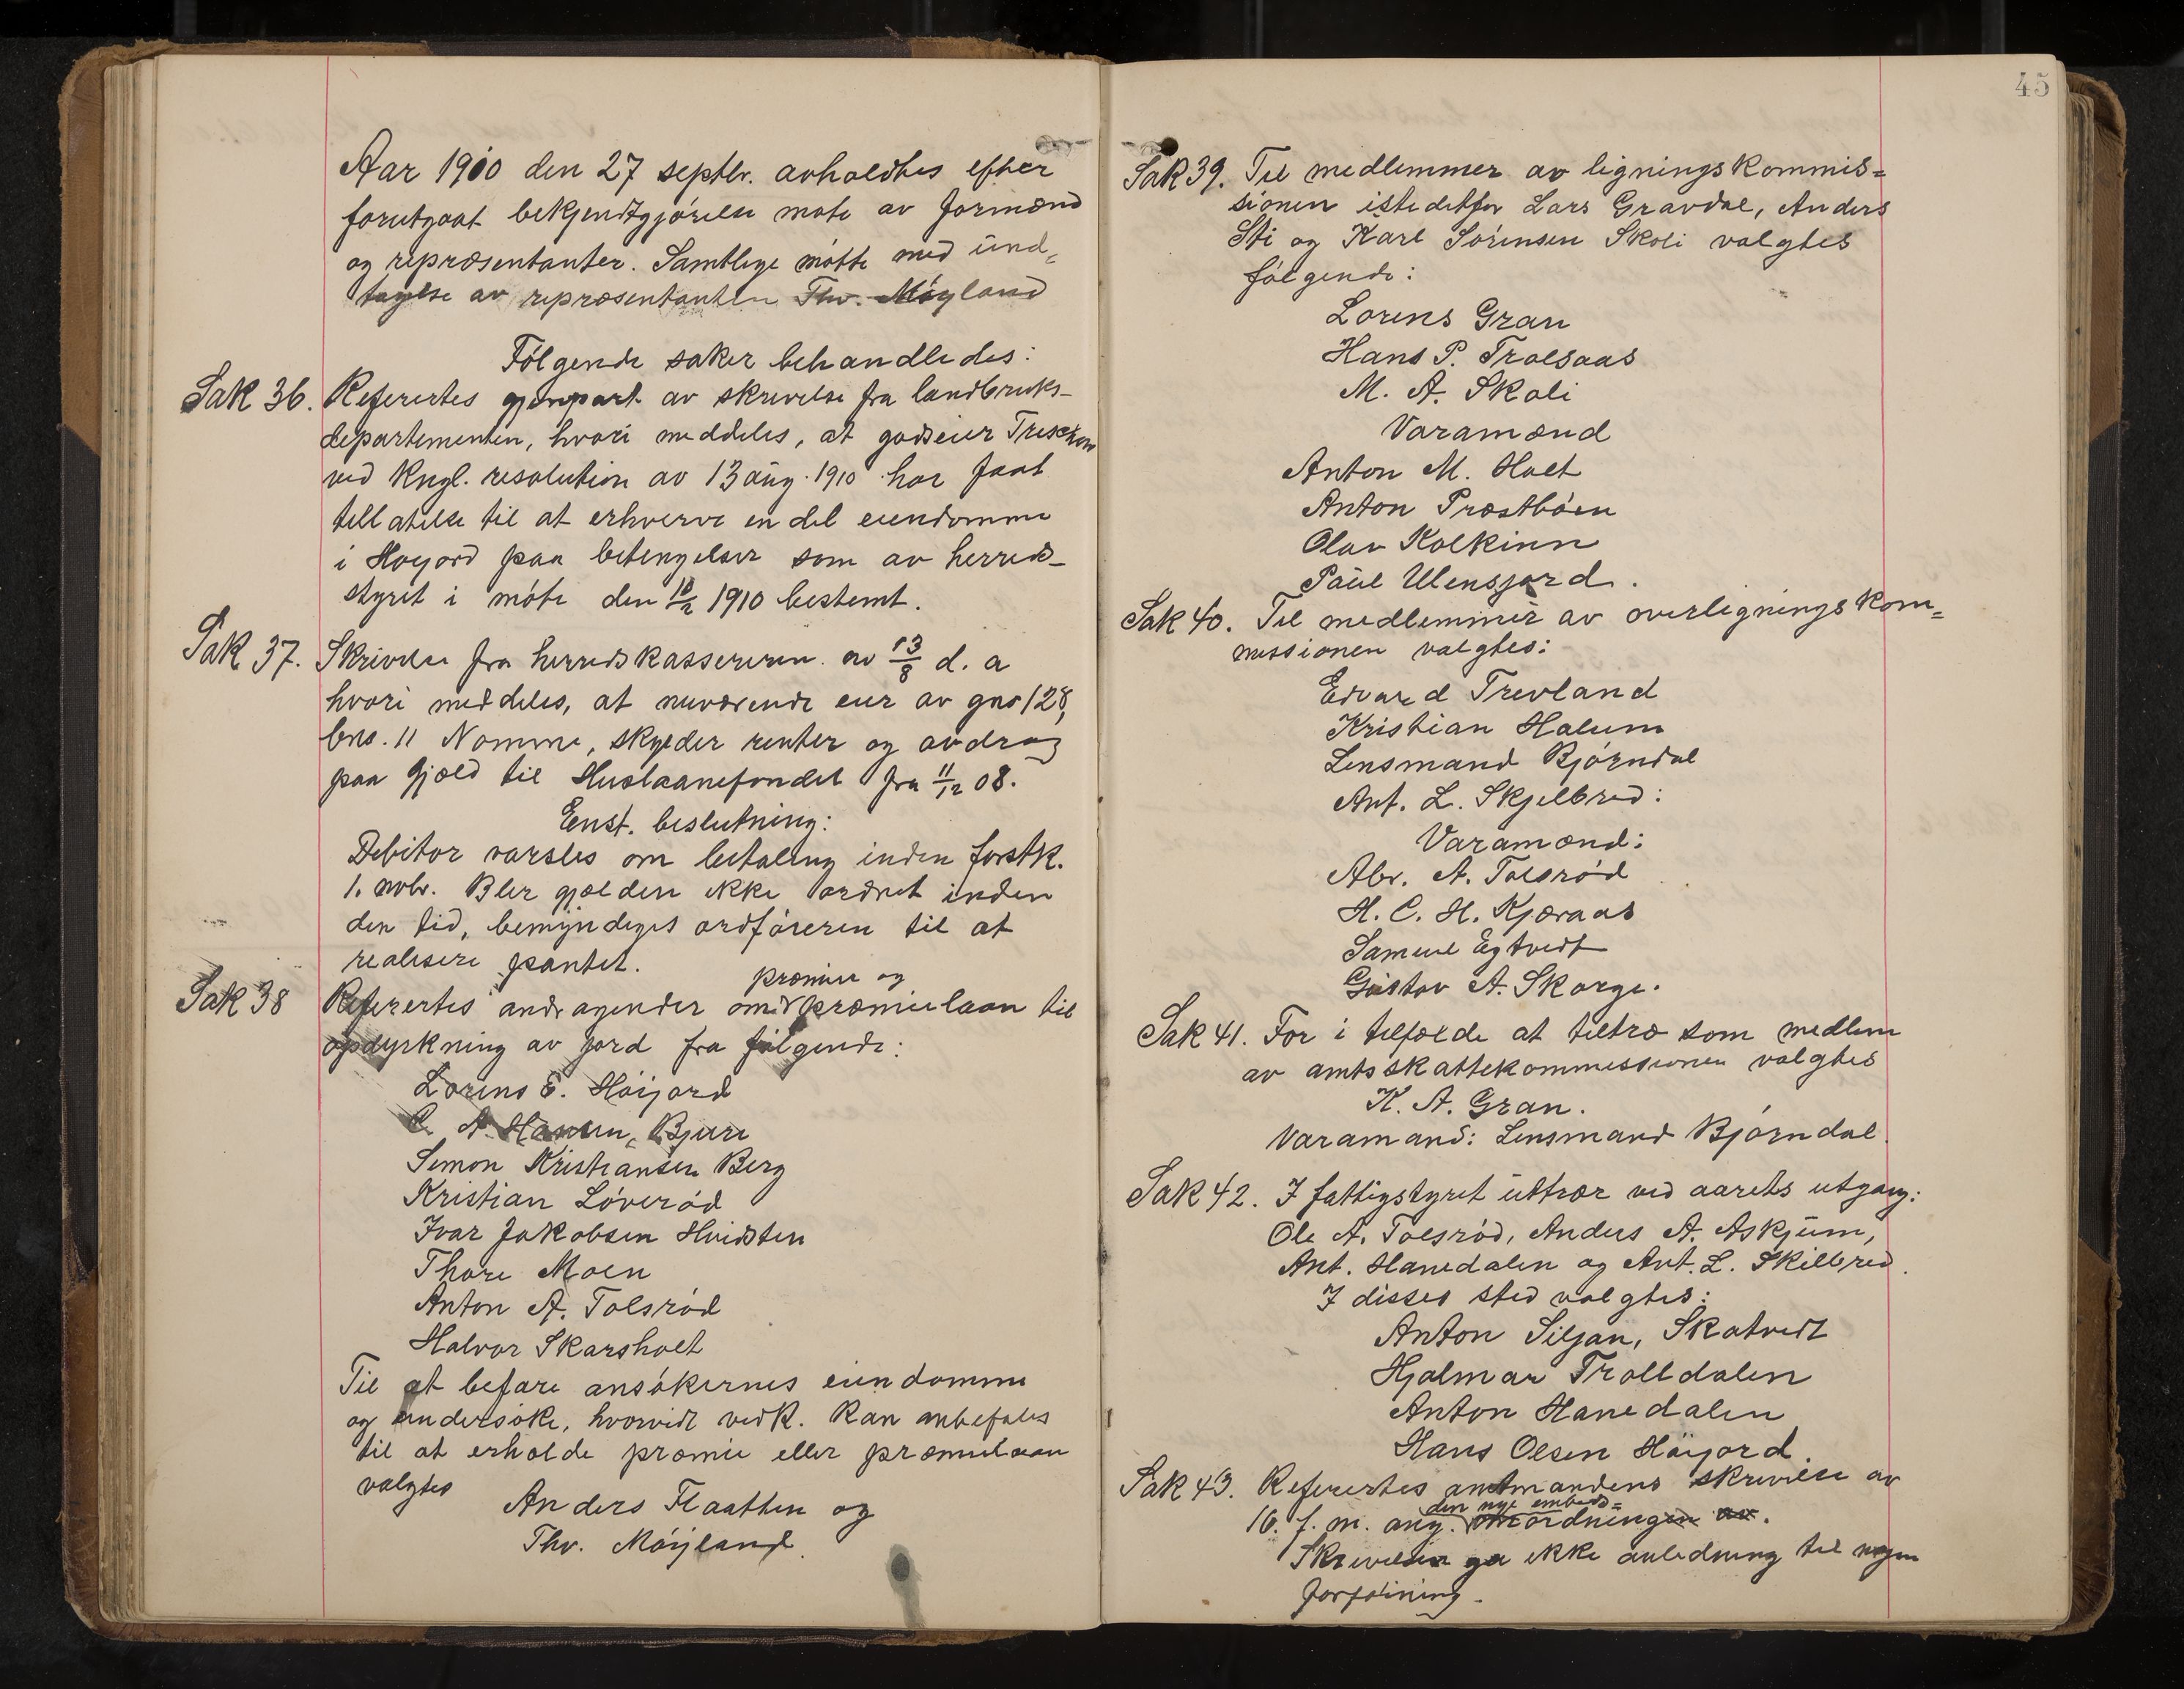 Aar 1910 den 27 septbr. avholdtes efter
forutgaat bekjendtgjörelse möte av formænd
og repræsentanter. Samtlige mötte med und=
tagelse av repræsentanten Thv. Möyland
Fölgende saker behandledes:
Sak 36. Referertes gjenpart av skrivelse fra landbruks-
departementen, hvori meddeles, at godseier Treschow
ved kngl. resolution av 13 aug. 1910 har faat
tillatelse til at erhverve en del eiendomme
i Høyjord paa betingelser som av herreds-
styret i möte den 18/2 1910 bestemt.
Sak 37. Skrivelse fra herredskassereren av 13/8 d. a
hvori meddeles, at nuværende eier av gno 128,
bno. 11 Nomme, skylder renter og avdrag
paa gjæld til Huslaanefondet fra 11/12 08.
Enst. beslutning:
Debitor varsles om betaling inden førstk.
1. novbr. Blir gjælden ikke ordnet inden
den tid, bemyndiges ordföreren til at
realisere pantet.
præmie og
Sak 38 Referertes andragender om præmielaan til
opdyrkning av jord fra fölgende:
Lorens E. Höijord
C. A. Hansen, Bjure
Simon Kristiansen Berg
Kristian Löveröd
Ivar Jakobsen Hvidsten
Thore Moen
Anton A. Tolsröd
Halvor Skarsholt
Til at befare ansökernes eiendomme
og undersöke, hvorvidt vedk. kan anbefales
til at erholde præmie eller præmielaan
valgtes
Anders Flaatten og
Thv. Möyland.
45
Sak 39. Til medlemmer av ligningskommis=
sionen istedetfor Lars Gravdal, Anders
Sti og Karl Sörensen Skoli valgtes
fölgende:
Lorens Gran
Hans P. Trolsaas
M. A. Skoli
Varamænd
Anton M. Holt
Anton Præstböen
Olav Kolkinn
Paul Ulensjord.
Sak 40. Til medlemmer av overligningskom=
missionen valgtes:
Edvard Trevland
Kristian Halum
Lensmand Björndal
Ant. L. Skjelbred:
Varamænd:
Abr. A. Tolsröd
H. C. H. Kjæraas
Samuel Egtvedt
Gustav A. Skorge.
Sak 41. For i tilfælde at tiltræ som medlem
av amtsskattekommissionen valgtes
K. A. Gran.
Varamand: Lensmand Björndal
Sak 42. I fattigstyret uttrær ved aarets utgang:
Ole A. Tolsröd, Anders A. Askjum,
Ant. Hanedalen og Ant. L. Skilbred.
I disses sted valgtes:
Anton Siljan, Skatvedt
Hjalmar Trolldalen
Anton Hanedalen
Hans Olsen Höijord.
Sak 43. Referertes amtmandens skrivelse av
den nye embeds=
16. f. m. ang. ordningen av.
Skrivelsen ga ikke anledning til nogen
forföining.